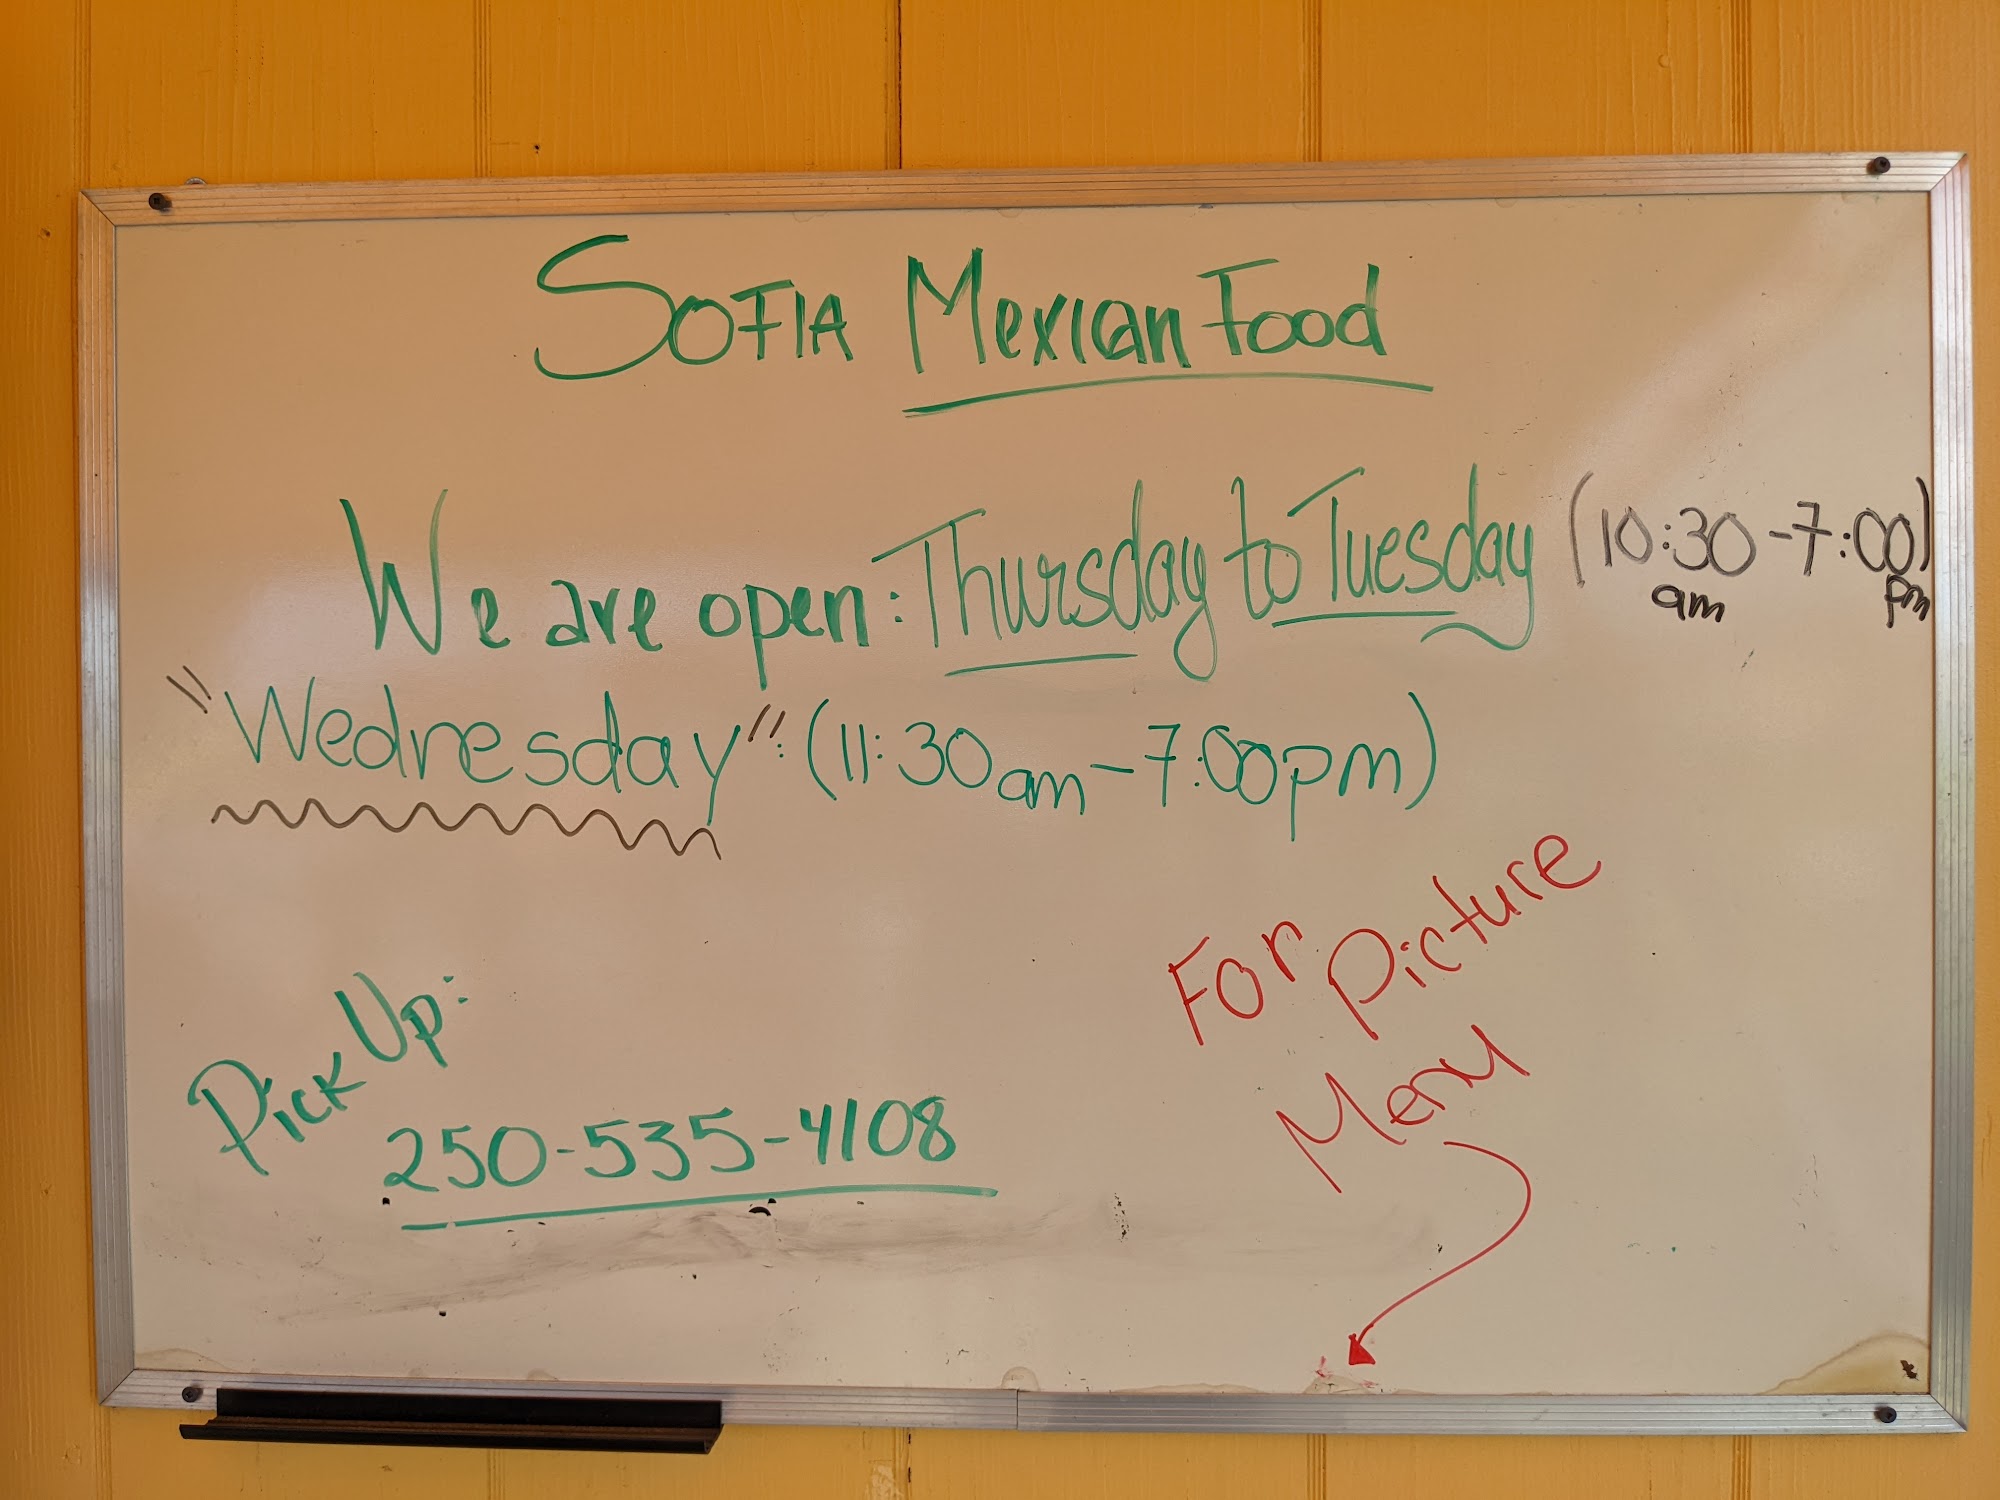 SOFIA Mexican Food
We are open: Thursday to Tuesday (10:30 am - 7:00 pm)
"Wednesday": (11:30am - 7:00pm)
Pick Up:
250-535-4108
For Picture
Menu